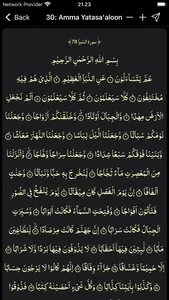 Network Provider 21.23
Back 30: Amma Yatasa'aloon
﴿ سورة النبإ 78 ﴾
بِسْمِ اللهِ الرَّحْمٰنِ الرَّحِيْمِ
عَمَّ يَتَسَاۤءَلُوْنَ ۝ عَنِ النَّبَاِ الْعَظِيْمِ ۝ الَّذِيْ هُمْ فِيْهِ
مُخْتَلِفُوْنَ ۝ كَلَّا سَيَعْلَمُوْنَ ۝ ثُمَّ كَلَّا سَيَعْلَمُوْنَ ۝ اَلَمْ نَجْعَلِ
الْاَرْضَ مِهٰدًا ۝ وَّالْجِبَالَ اَوْتَادًا ۝ وَّخَلَقْنٰكُمْ اَزْوَاجًا ۝ وَّجَعَلْنَا
نَوْمَكُمْ سُبَاتًا ۝ وَّجَعَلْنَا الَّيْلَ لِبَاسًا ۝ وَّجَعَلْنَا النَّهَارَ مَعَاشًا ۝
وَّبَنَيْنَا فَوْقَكُمْ سَبْعًا شِدَادًا ۝ وَّجَعَلْنَا سِرَاجًا وَّهَّاجًا ۝ وَّاَنْزَلْنَا
مِنَ الْمُعْصِرٰتِ مَاۤءً ثَجَّاجًا ۝ لِّنُخْرِجَ بِهٖ حَبًّا وَّنَبَاتًا ۝ وَّجَنّٰتٍ
اَلْفَافًا ۝ اِنَّ يَوْمَ الْفَصْلِ كَانَ مِيْقَاتًا ۝ يَّوْمَ يُنْفَخُ فِى الصُّوْرِ
فَتَأْتُوْنَ اَفْوَاجًا ۝ وَّفُتِحَتِ السَّمَاۤءُ فَكَانَتْ اَبْوَابًا ۝ وَّسُيِّرَتِ
الْجِبَالُ فَكَانَتْ سَرَابًا ۝ اِنَّ جَهَنَّمَ كَانَتْ مِرْصَادًا ۝ لِّلطَّاغِيْنَ
مَاٰبًا ۝ لّٰبِثِيْنَ فِيْهَاۤ اَحْقَابًا ۝ لَا يَذُوْقُوْنَ فِيْهَا بَرْدًا وَّلَا شَرَابًا ۝
اِلَّا حَمِيْمًا وَّغَسَّاقًا ۝ جَزَاۤءً وِّفَاقًا ۝ اِنَّهُمْ كَانُوْا لَا يَرْجُوْنَ حِسَابًا
۝ وَّكَذَّبُوْا بِاٰيٰتِنَا كِذَّابًا ۝ وَكُلَّ شَيْءٍ اَحْصَيْنٰهُ كِتٰبًا ۝